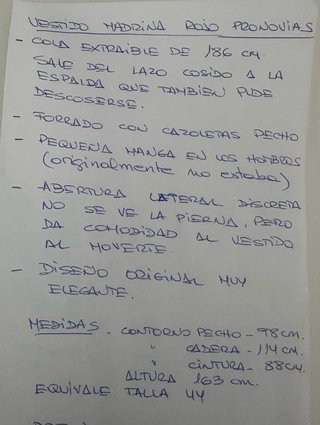 VESTIDO MADRINA ROJO PRONOVIAS
- COLA EXTRAIBLE DE 186 CM.
SALE DEL LAZO COSIDO A LA
ESPALDA QUE TAMBIEN PUDE
DESCOSERSE.
- FORRADO CON CAZOLETAS PECHO
- PEQUEÑA MANGA EN LOS HOMBROS
(originalmente no estaba)
- ABERTURA LATERAL DISCRETA
NO SE VE LA PIERNA, PERO
DA COMODIDAD AL VESTIDO
AL MOVERTE.
- DISEÑO ORIGINAL MUY
ELEGANTE.
MEDIDAS - CONTORNO PECHO - 98 CM.
" CADERA - 114 CM.
" CINTURA - 88 CM.
ALTURA 163 cm.
EQUIVALE TALLA 44